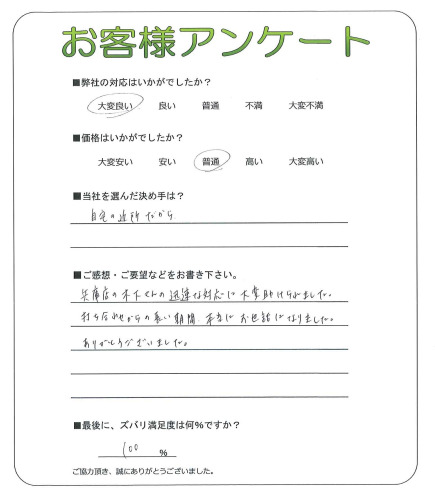 お客様アンケート
■弊社の対応はいかがでしたか？
大変良い 良い 普通 不満 大変不満
■価格はいかがでしたか？
大変安い 安い 普通 高い 大変高い
■当社を選んだ決め手は？
自宅の近所だから
■ご感想・ご要望などをお書き下さい。
兵庫店の木下さんの迅速な対応に大変助けられました。
打ち合わせからの長い期間 本当にお世話になりました。
ありがとうございました。
■最後に、ズバリ満足度は何％ですか？
100 ％
ご協力頂き、誠にありがとうございました。